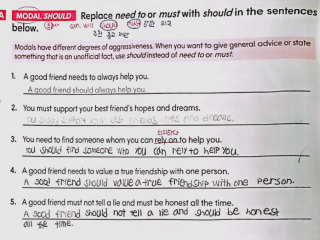 A MODAL SHOULD Replace need to or must with should in the sentences
can. will should must
below.
Modals have different degrees of aggressiveness. When you want to give general advice or state
something that is an unofficial fact, use should instead of need to or must.
1. A good friend needs to always help you.
A good friend should always help you.
2. You must support your best friend's hopes and dreams.
You should support your best friend's and dreams.
3. You need to find someone whom you can rely on to help you.
You should find someone who you can rely to help you.
4. A good friend needs to value a true friendship with one person.
A good friend should value a true friendship with one person.
5. A good friend must not tell a lie and must be honest all the time.
A good friend should not tell a lie and should be honest
all the time.